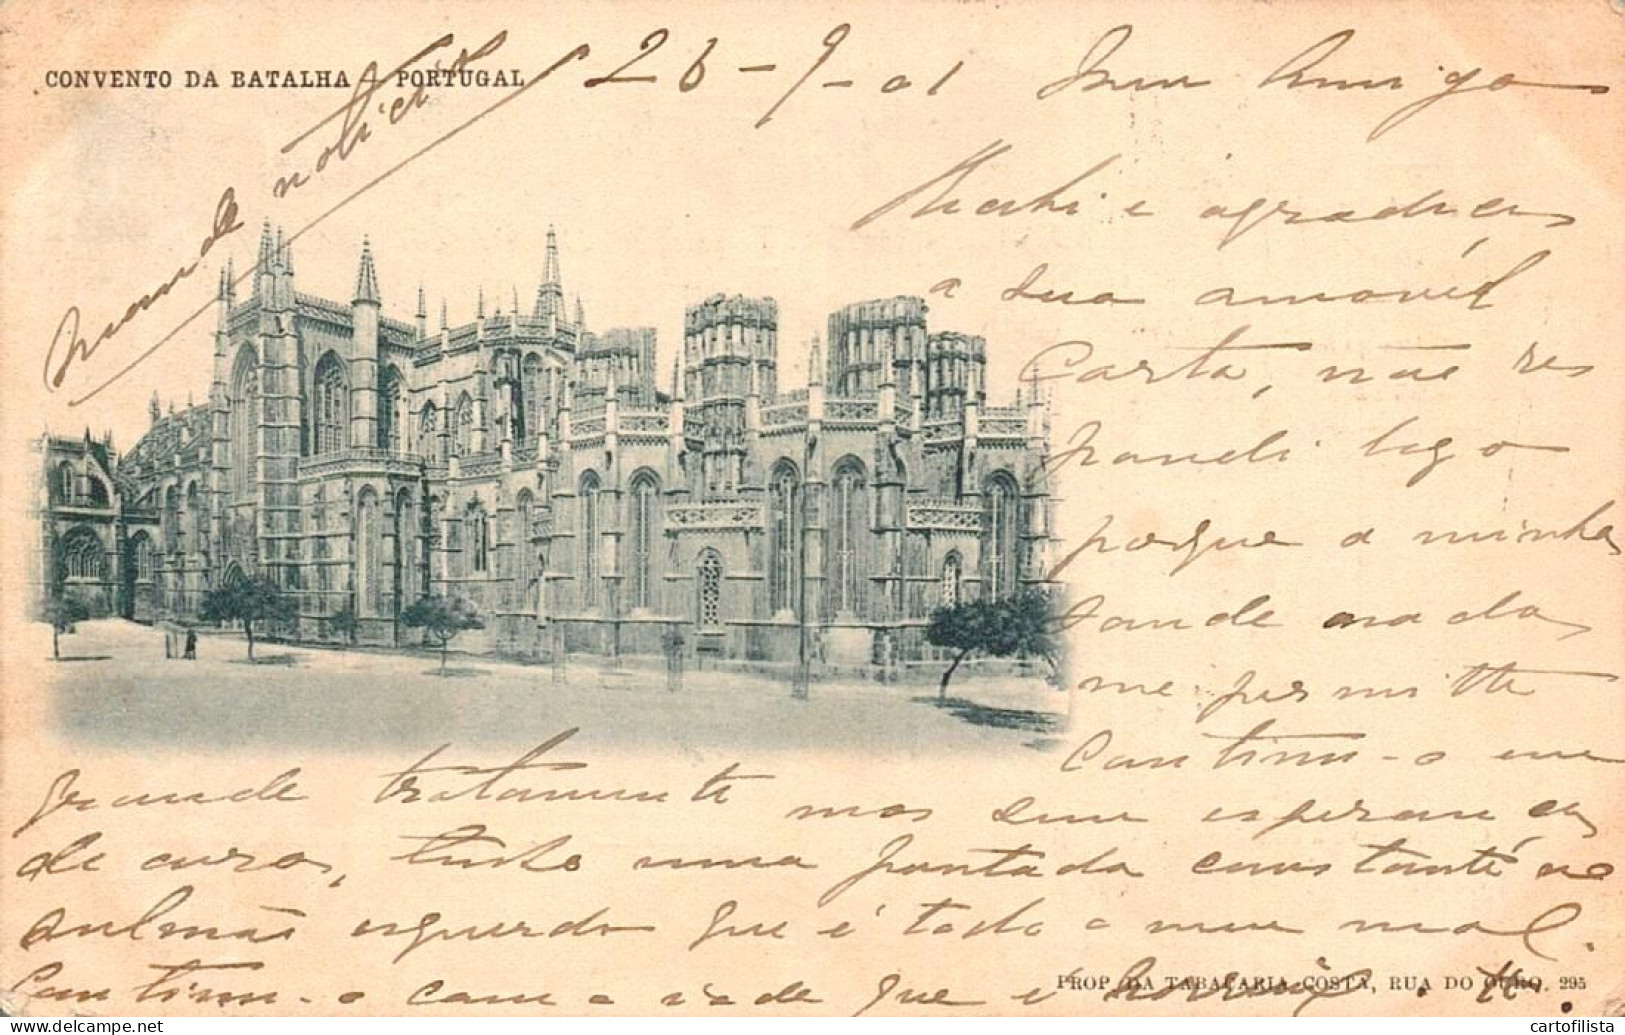 CONVENTO DA BATALHA - PORTUGAL
26-9-01 Meu Amigo
Recebi e agradeci
a sua amavél
Carta, não res
pondi logo
porque a minha
saude nada
me permitte
Continu-o em
grande tratamento mas sem esperanças
de cura, tenho uma pontada constante no
pulmão esquerdo que é todo o meu mal.
Continu-o com a sede que é horrivel.
Mande noticias
PROP. DA TABACARIA COSTA, RUA DO OURO, 295
www.delcampe.net
cartofilista